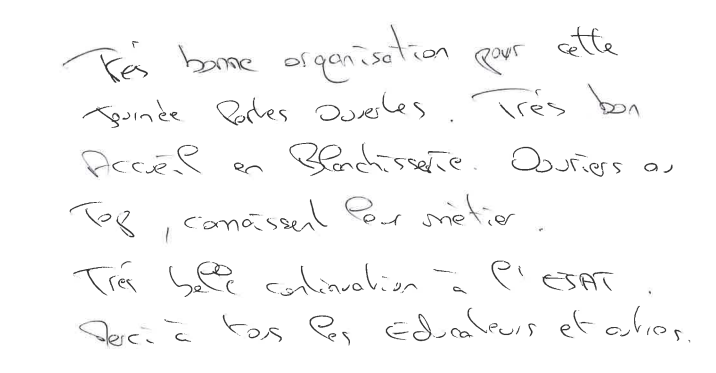 Très bonne organisation pour cette
journée Portes Ouvertes. Très bon
Accueil en Blanchisserie. Ouvriers au
Top, connaissent leur métier.
Très belle continuation à l'ESAT.
Merci à tous les Éducateurs et autres.